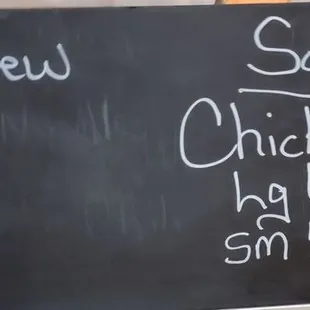 ew
So
Chick
hg
sm